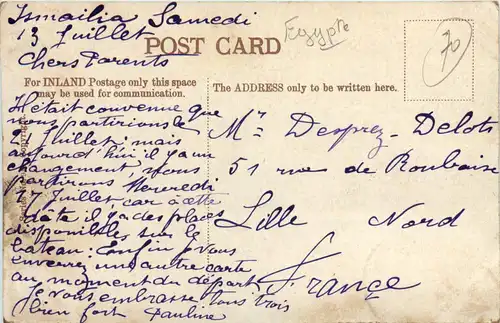 Ismaïlia Samedi
13 Juillet
Chers Parents
Egypte
70
POST CARD
For INLAND Postage only this space
may be used for communication.
The ADDRESS only to be written here.
Il était convenue que
nous partirions le
21 Juillet, mais
aujourd'hui il y a un
changement, nous
partirons Mercredi
27 Juillet, car à cette
date il y a des places
disponibles sur le
bateau. Enfin je vous
enverrez une autre carte
au moment du départ
Je vous embrasse tous trois
bien fort Pauline
Mr Desprez-Delots
51 rue de Roubaix
Lille Nord
France